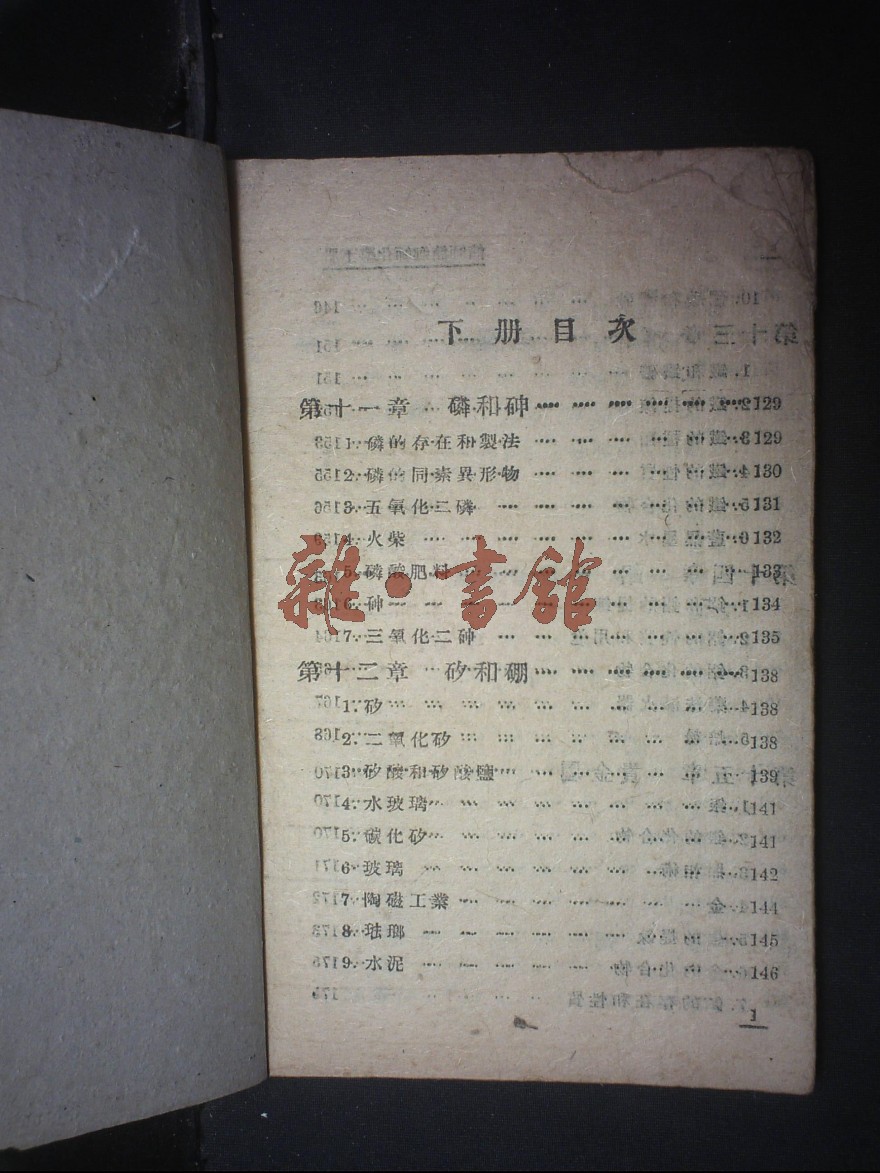 下册目次
第十一章 磷和砷 129
1. 磷的存在和製法 129
2. 磷的同素異形物 130
3. 五氧化二磷 131
4. 火柴 132
5. 磷酸肥料 133
6. 砷 134
7. 三氧化二砷 135
第十二章 矽和硼 138
1. 矽 138
2. 二氧化矽 138
3. 矽酸和矽酸鹽 139
4. 水玻璃 141
5. 碳化矽 141
6. 玻璃 142
7. 陶磁工業 144
8. 琺瑯 145
9. 水泥 146
1
雜·書館